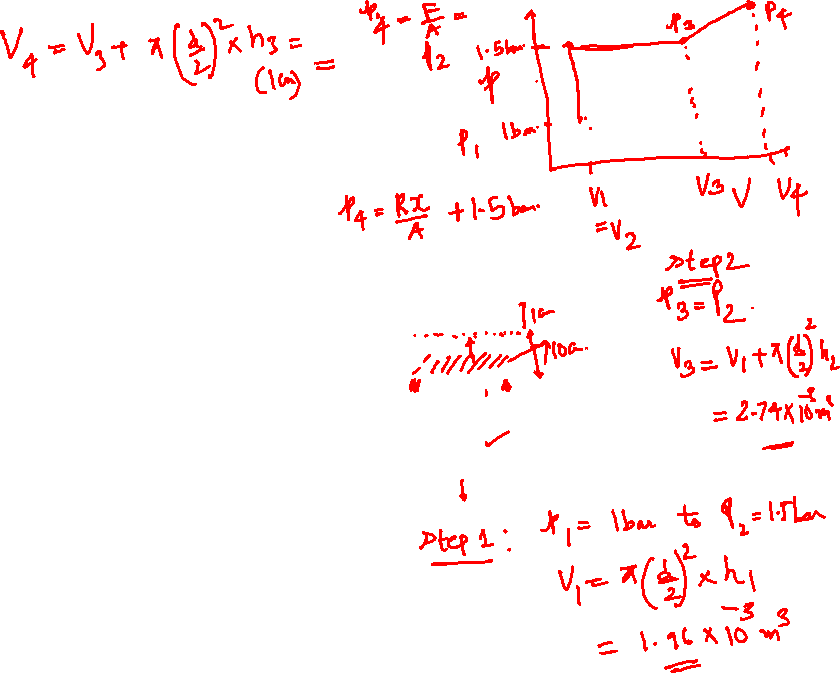 V₄ = V₃ + π(d/2)² × h₃ =
(1cm) =
p₄ = F/A =
p₂
1.5bar
p
p₁ 1bar
p₃
p₄
V₁
= V₂
V₃ V V₄
p₄ = kx/A + 1.5 bar
Step 2
p₃ = p₂
V₃ = V₁ + π(d/2)² h₂
= 2.74 × 10⁻³ m³
Step 1: p₁ = 1bar to p₂ = 1.5bar
V₁ = π(d/2)² × h₁
= 1.96 × 10⁻³ m³